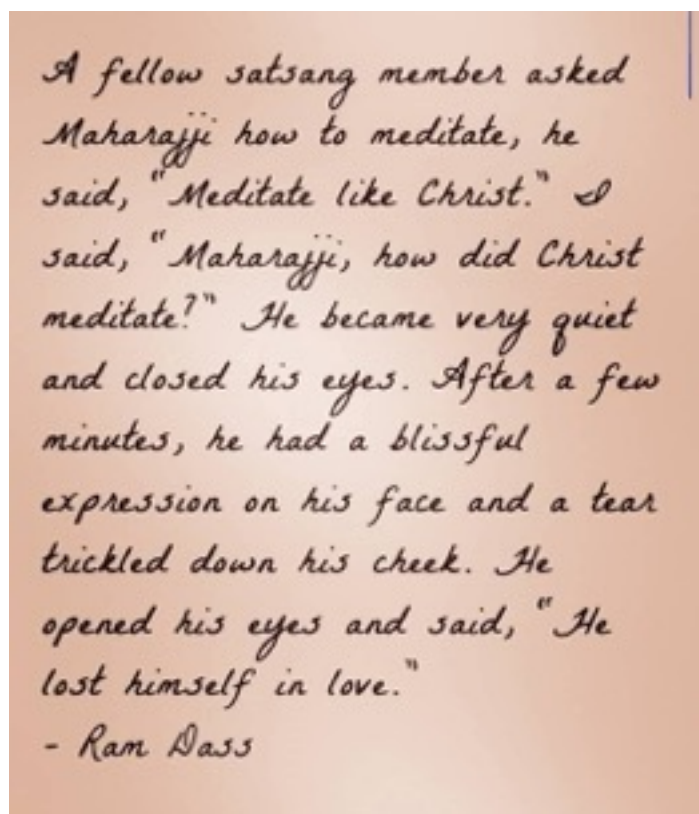 A fellow satsang member asked
Maharajji how to meditate, he
said, "Meditate like Christ." I
said, "Maharajji, how did Christ
meditate?" He became very quiet
and closed his eyes. After a few
minutes, he had a blissful
expression on his face and a tear
trickled down his cheek. He
opened his eyes and said, "He
lost himself in love."
- Ram Dass